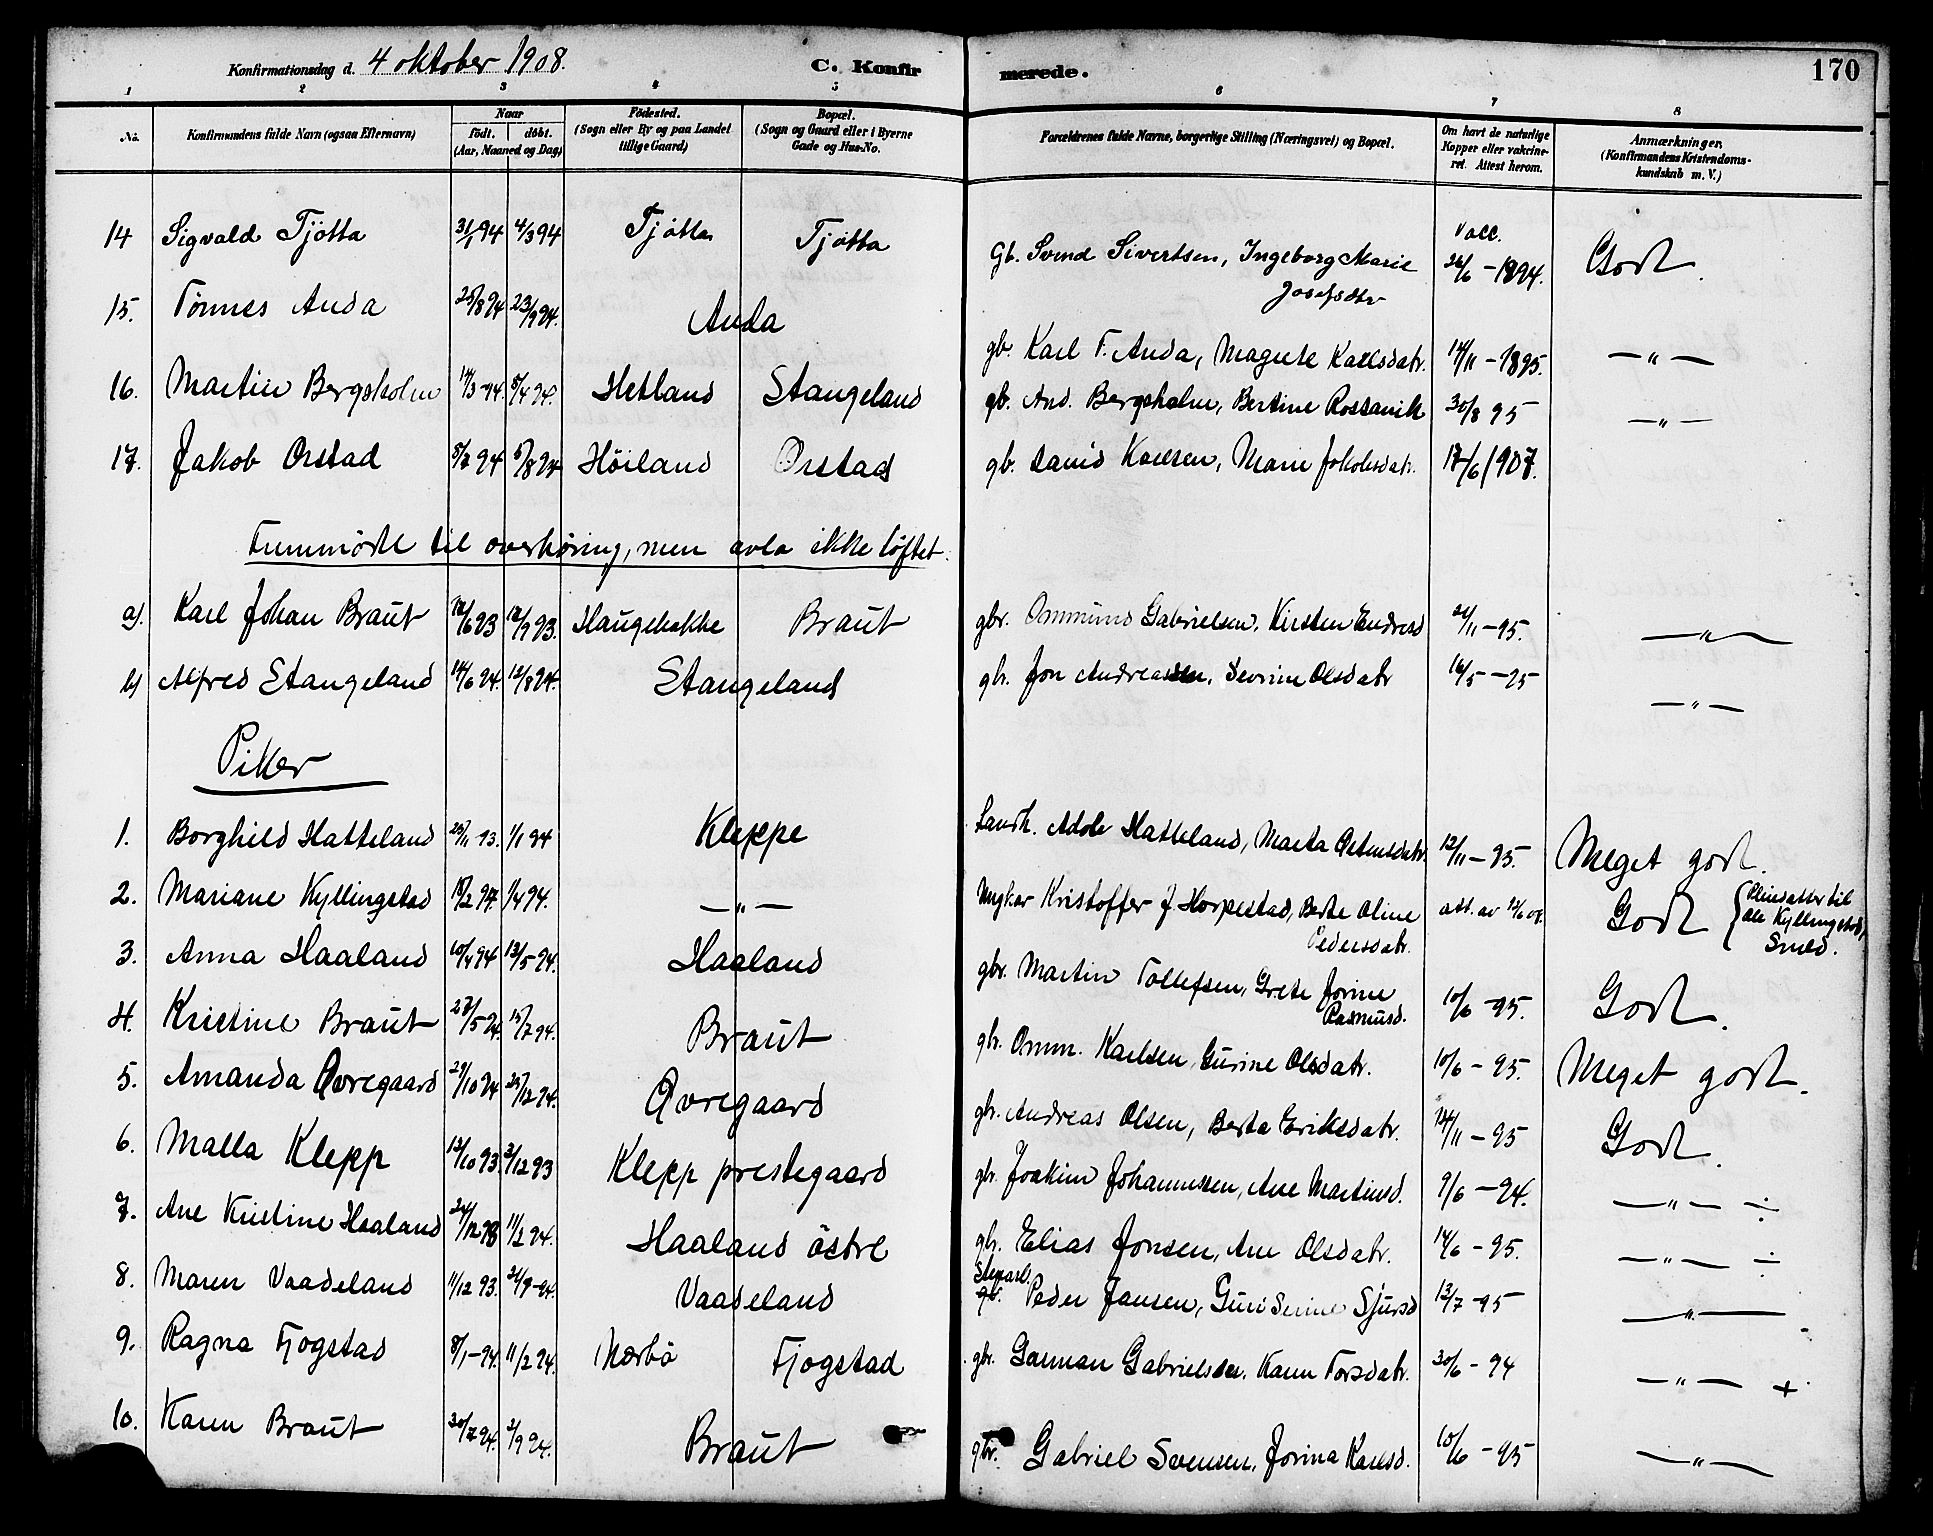 Konfirmationsdag d. 4 oktober 1908. C. Konfirmerede. 170
1 2 3 4 5 6 7 8
No. Konfirmandens fulde Navn (ogsaa Efternavn) Naar født. døbt. (Aar, Maaned og Dag) Fødested. (Sogn eller By og paa Landet tillige Gaard) Bopæl. (Sogn og Gaard eller i Byerne Gade og Hus-No. Forældrenes fulde Navne, borgerlige Stilling (Næringsvei) og Bopæl. Om havt de naturlige Kopper eller vakcineret. Attest herom. Anmærkninger. (Konfirmandens Kristendomskundskab m. V.)
14 Sigvald Tjøtta 31/1 94 4/3 94 Tjøtta Tjøtta Gb. Svend Sivertsen, Ingeborg Marie Josefsdtr Vacc. 26/6 - 1894. Godt.
15. Tönnes Anda 25/8 94 23/9 94. Anda gb. Karl T. Anda, Magrete Karlsdatr. 14/11 - 1895. — " —
16. Martin Bergsholm 14/3 94. 8/4 94. Hetland Stangeland gb. And. Bergsholm, Bertine Rossavik 30/8 95 — " —
17. Jakob Orstad 8/7 94 5/8 94 Höiland Orstad gb. David Karlsen, Marie Jakobsdatr. 17/6 1907.
Fremmødte til overhöring, men avla ikke löftet.
a). Karl Johan Braut 12/6 93 Haugehakke Braut gbr. Ommund Gabrielsen, Kirsten Endresd 21/11 - 95. — " —
b) Alfred Stangeland 14/6 94. 12/8 94. Stangeland gb. Jon Andreassen, Sevrine Olsdatr 16/5 - 95 — " —
Piker
1. Borghild Hatteland 25/11 93. 1/1 94 Kleppe Landh. Adolv Hatteland, Marta Østensdatr. 12/11 - 95. Meget godt.
2. Mariane Kyllingstad 18/2 94. 1/4 94. — " — Ungkar Kristoffer J. Horpestad, Berte Oline Pedersdatr. att. av Godt { Pleiedatter til Ole Kyllingstad, Smed.
3. Anna Haaland 10/4 94 13/5 94. Haaland gbr. Martin Tollefsen, Grete Jorine Rasmusd. 10/6 - 95. Godt.
4. Kristine Braut 27/5 94. 15/7 94. Braut gb. Omm. Karlsen, Gurine Olsdatr. 10/6 - 95. Meget godt.
5. Amanda Øvregaard 29/10 94 25/12 94. Øvregaard gb. Andreas Olsen, Berta Eriksdatr. 14/11 - 95 Godt.
6. Malla Klepp 12/10 93 3/12 93 Klepp prestegaard gb. Joakim Johannessen, Ane Martinsd. 9/6 - 94. — " — ÷
7. Ane Kristine Haaland 24/12 93 11/2 94. Haaland östre gb. Elias Jonsen, Ane Olsdatr. 14/6 - 95. — " — ÷
8. Maren Vaadeland 11/12 93. Vaadeland Stenarb. gb. Peder Jansen, Guri Serine Sjursd 13/7 - 95 — " —
9. Ragna Fjogstad 8/1 - 94. 11/2 94. Nærbö Fjogstad gb. Gabrielsen, Karen Torsdatr. 30/6 - 94 — " — +
10. Karen Braut 30/7 94. 2/9 94. Braut gbr. Gabriel Svensen, Jorina Karlsd. 10/6 - 95 — " —